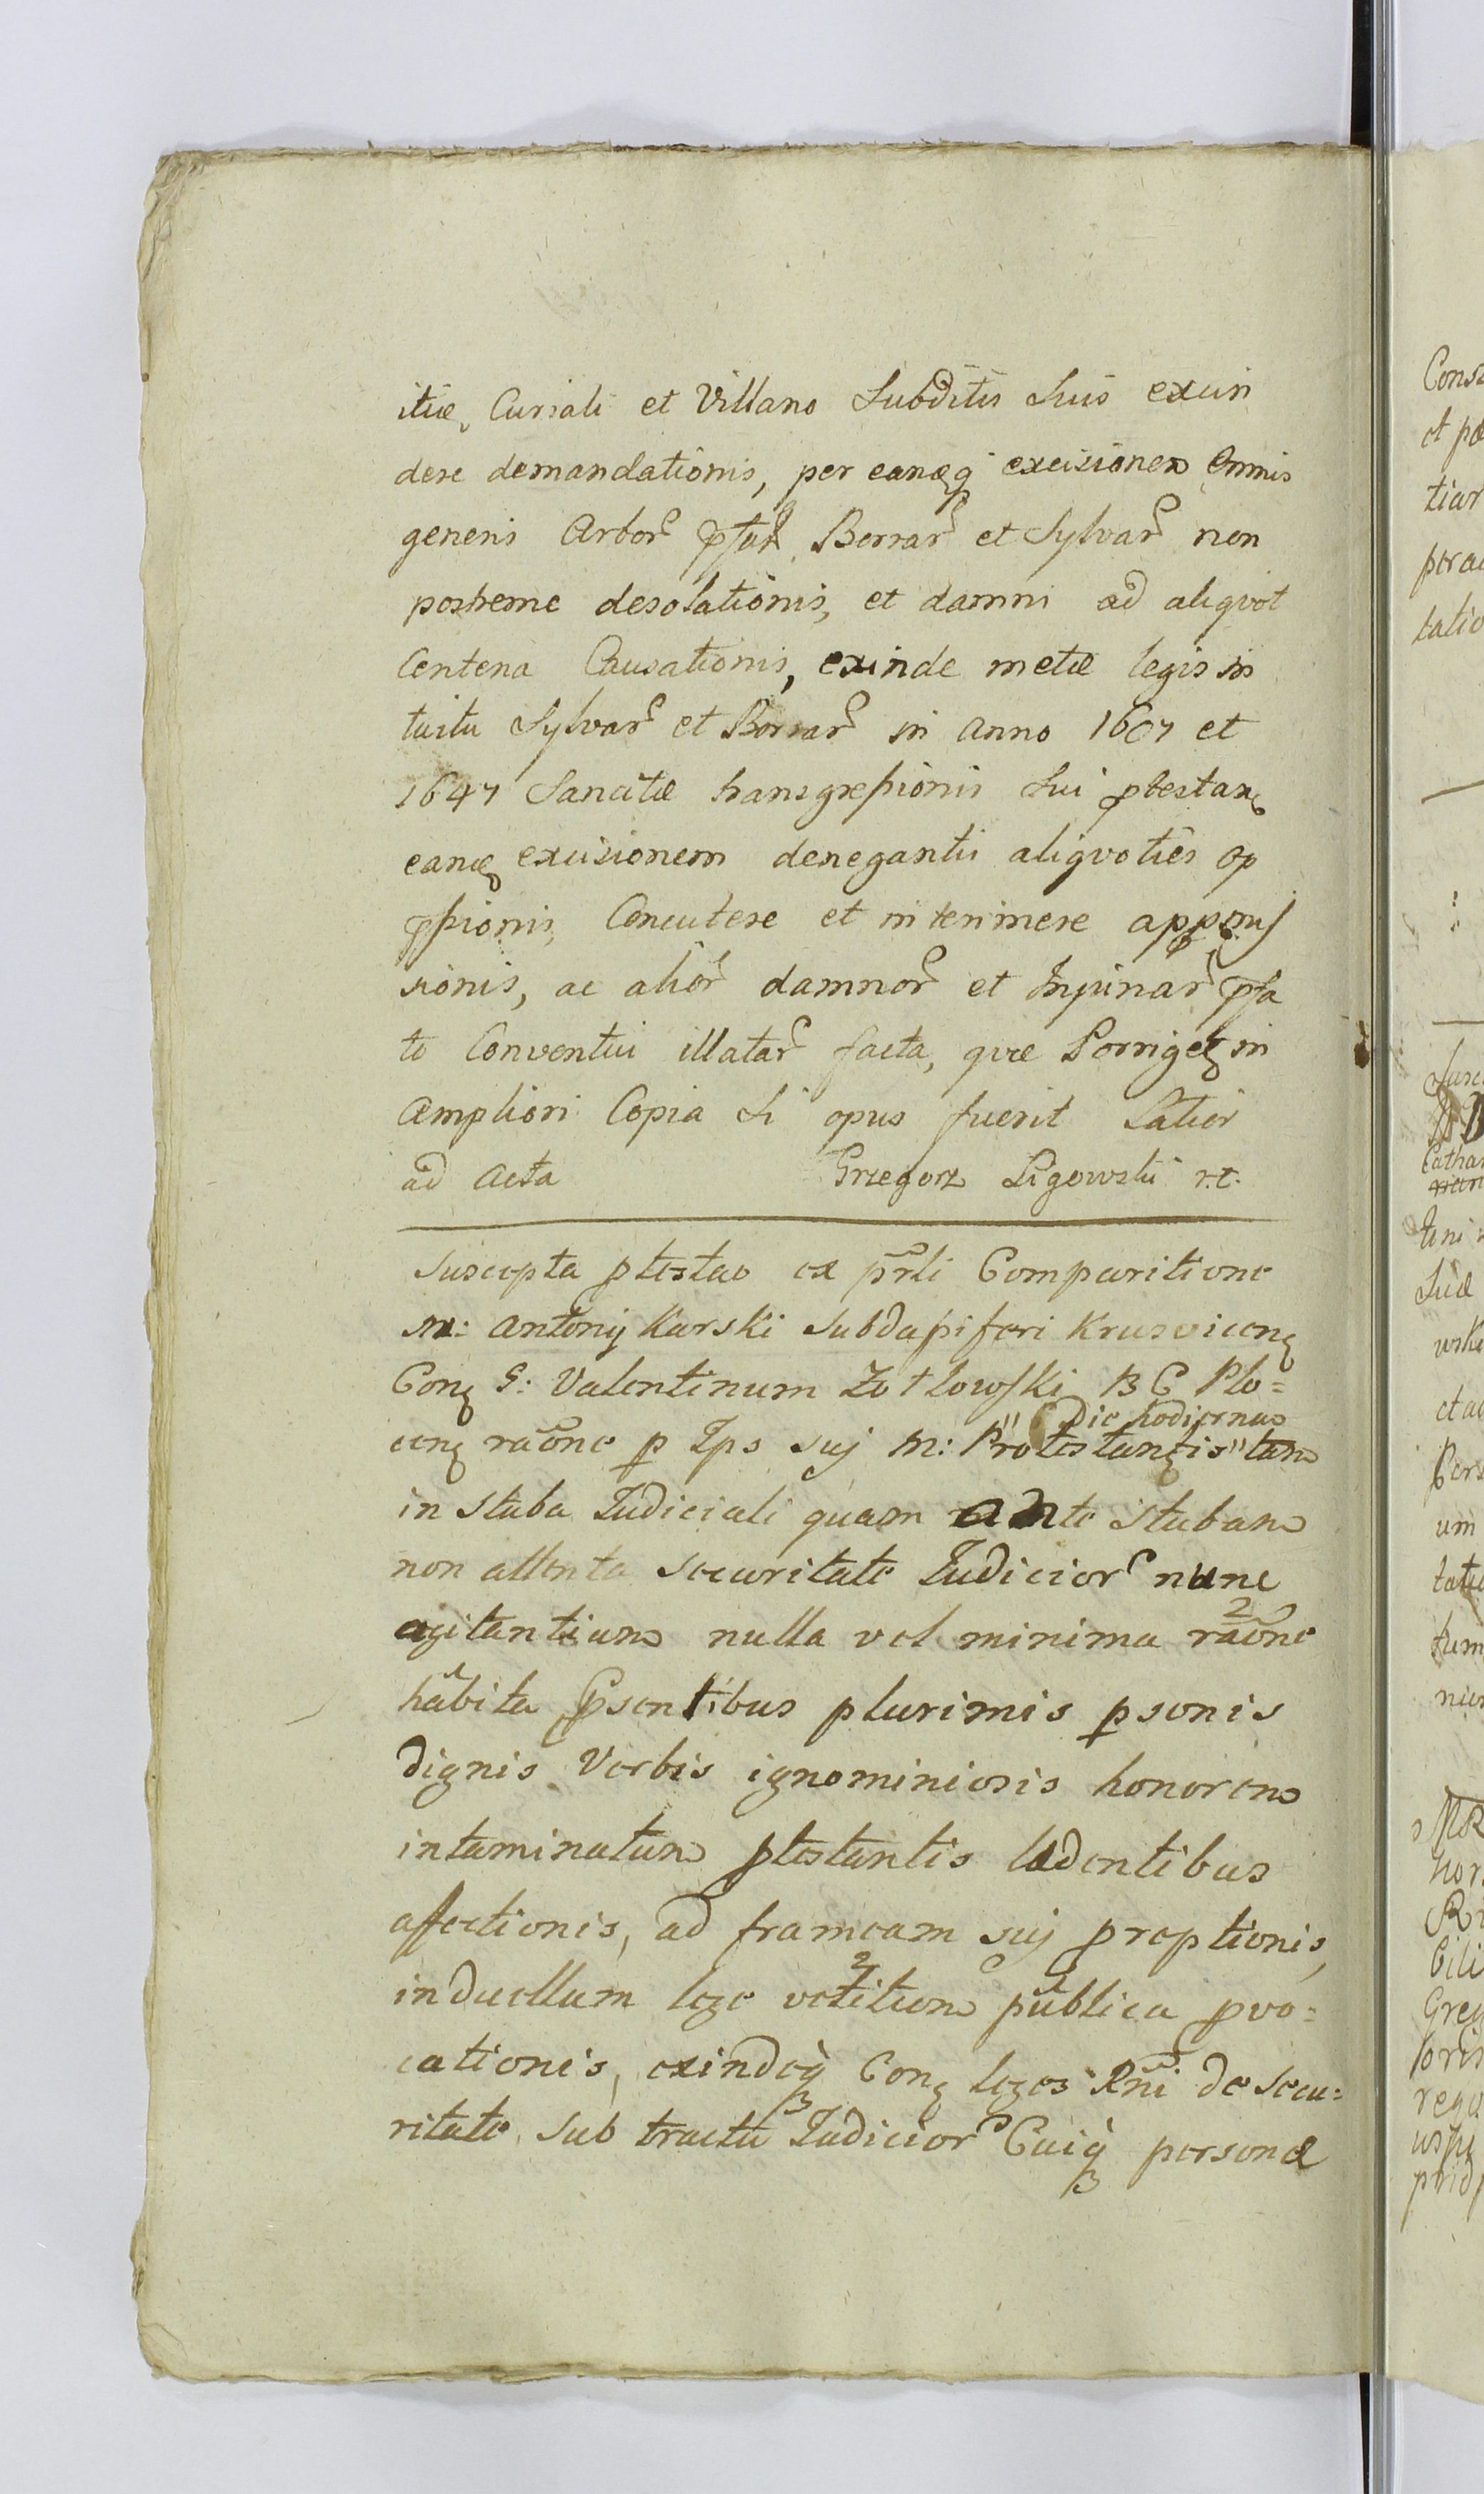 itiæ, Curiali et Villano Subditis Suis excin
dere demandationis, per eamqꝫ excisionem Omnis
generis Arbor Borrar et Sylvar non
postreme desolationis, et damni ad aliqvot
Centena Causationis, exinde metæ legis in
tuitu Sylvar et Borrar in Anno 1607 et
1647 Sancitæ transgressionis Sui ptestan
eandem excisionem denegantii aliqvoties op
pssionis, Concutere et interimere
sionis, ac alior damnor et Injuriar psa
to Conventui illatar facta, qvæ Porriget in
Ampliori Copia Si opus fuerit Latior
ad Acta Grzegorz Ligowski r.t.
Suscepta ptestao ex prli Comparitione
M: Antonij Karski Subdapiferi Krusvicen
Con G: Valentinum Zotlowski B C Plo=
cen raone p Ips suj M: Protestantis" "Die hodierna tam
in Stuba Judiciali quam ante Stubam
non attenta Securitate Judicior nunc
agitantium nulla vel minima raone
habita psentibus plurimis psonis
dignis Verbis ignominiosis honorem
intaminatum ptestantis lædentibus
affectionis, ad frameam suj proptionis,
in duellum lege vetitum publica pvo=
cationis, exindeq Con leges Rni de secu=
ritate Sub tractu Judicior Cuiq personæ